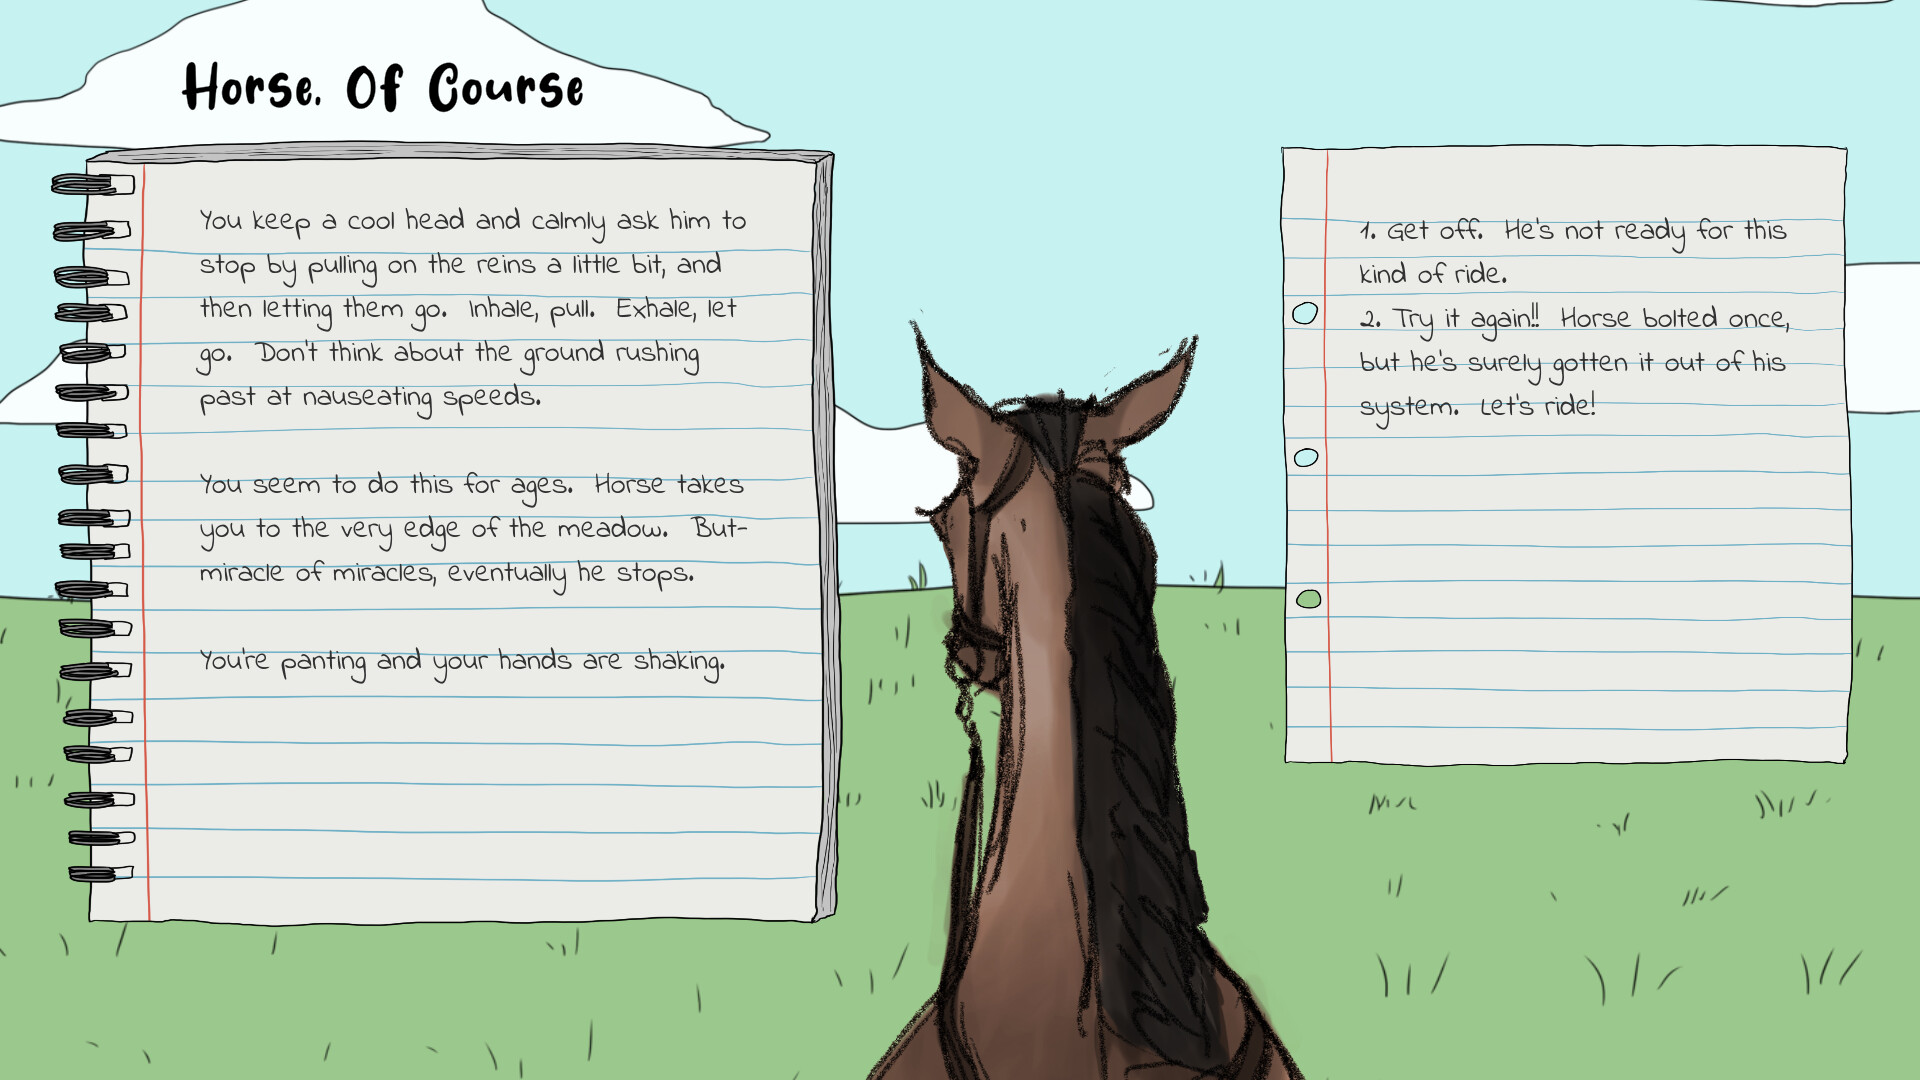 Horse. Of Course
You keep a cool head and calmly ask him to
stop by pulling on the reins a little bit, and
then letting them go.  Inhale, pull.  Exhale, let
go.  Don't think about the ground rushing
past at nauseating speeds.
You seem to do this for ages.  Horse takes
you to the very edge of the meadow.  But-
miracle of miracles, eventually he stops.
You're panting and your hands are shaking.
1. Get off.  He's not ready for this
kind of ride.
2. Try it again!!  Horse bolted once,
but he's surely gotten it out of his
system.  Let's ride!